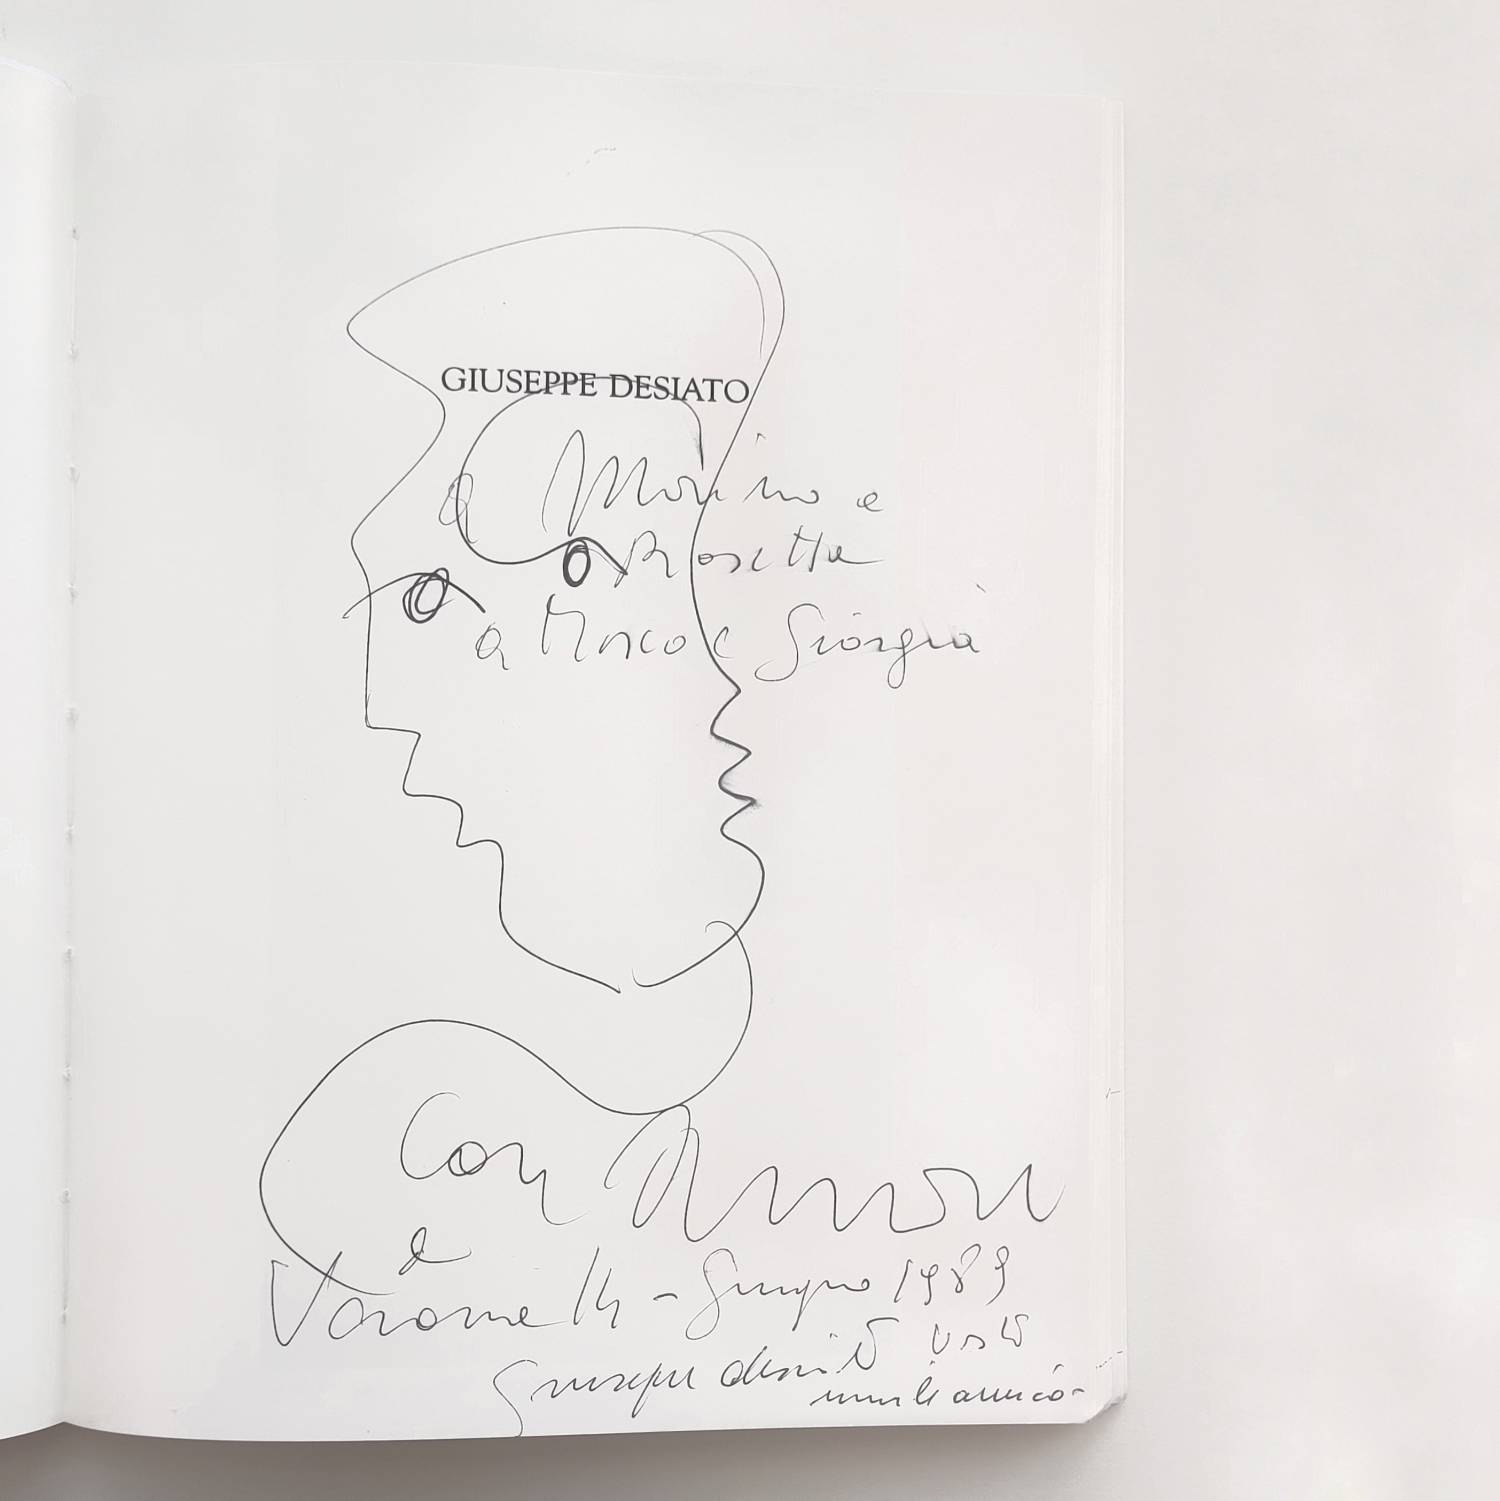 GIUSEPPE DESIATO
a Marino e
Rosetta
a Marco e Giorgia
Con Amore
a
- Giugno 1989
Giuseppe desiato Vostro
umile amico -